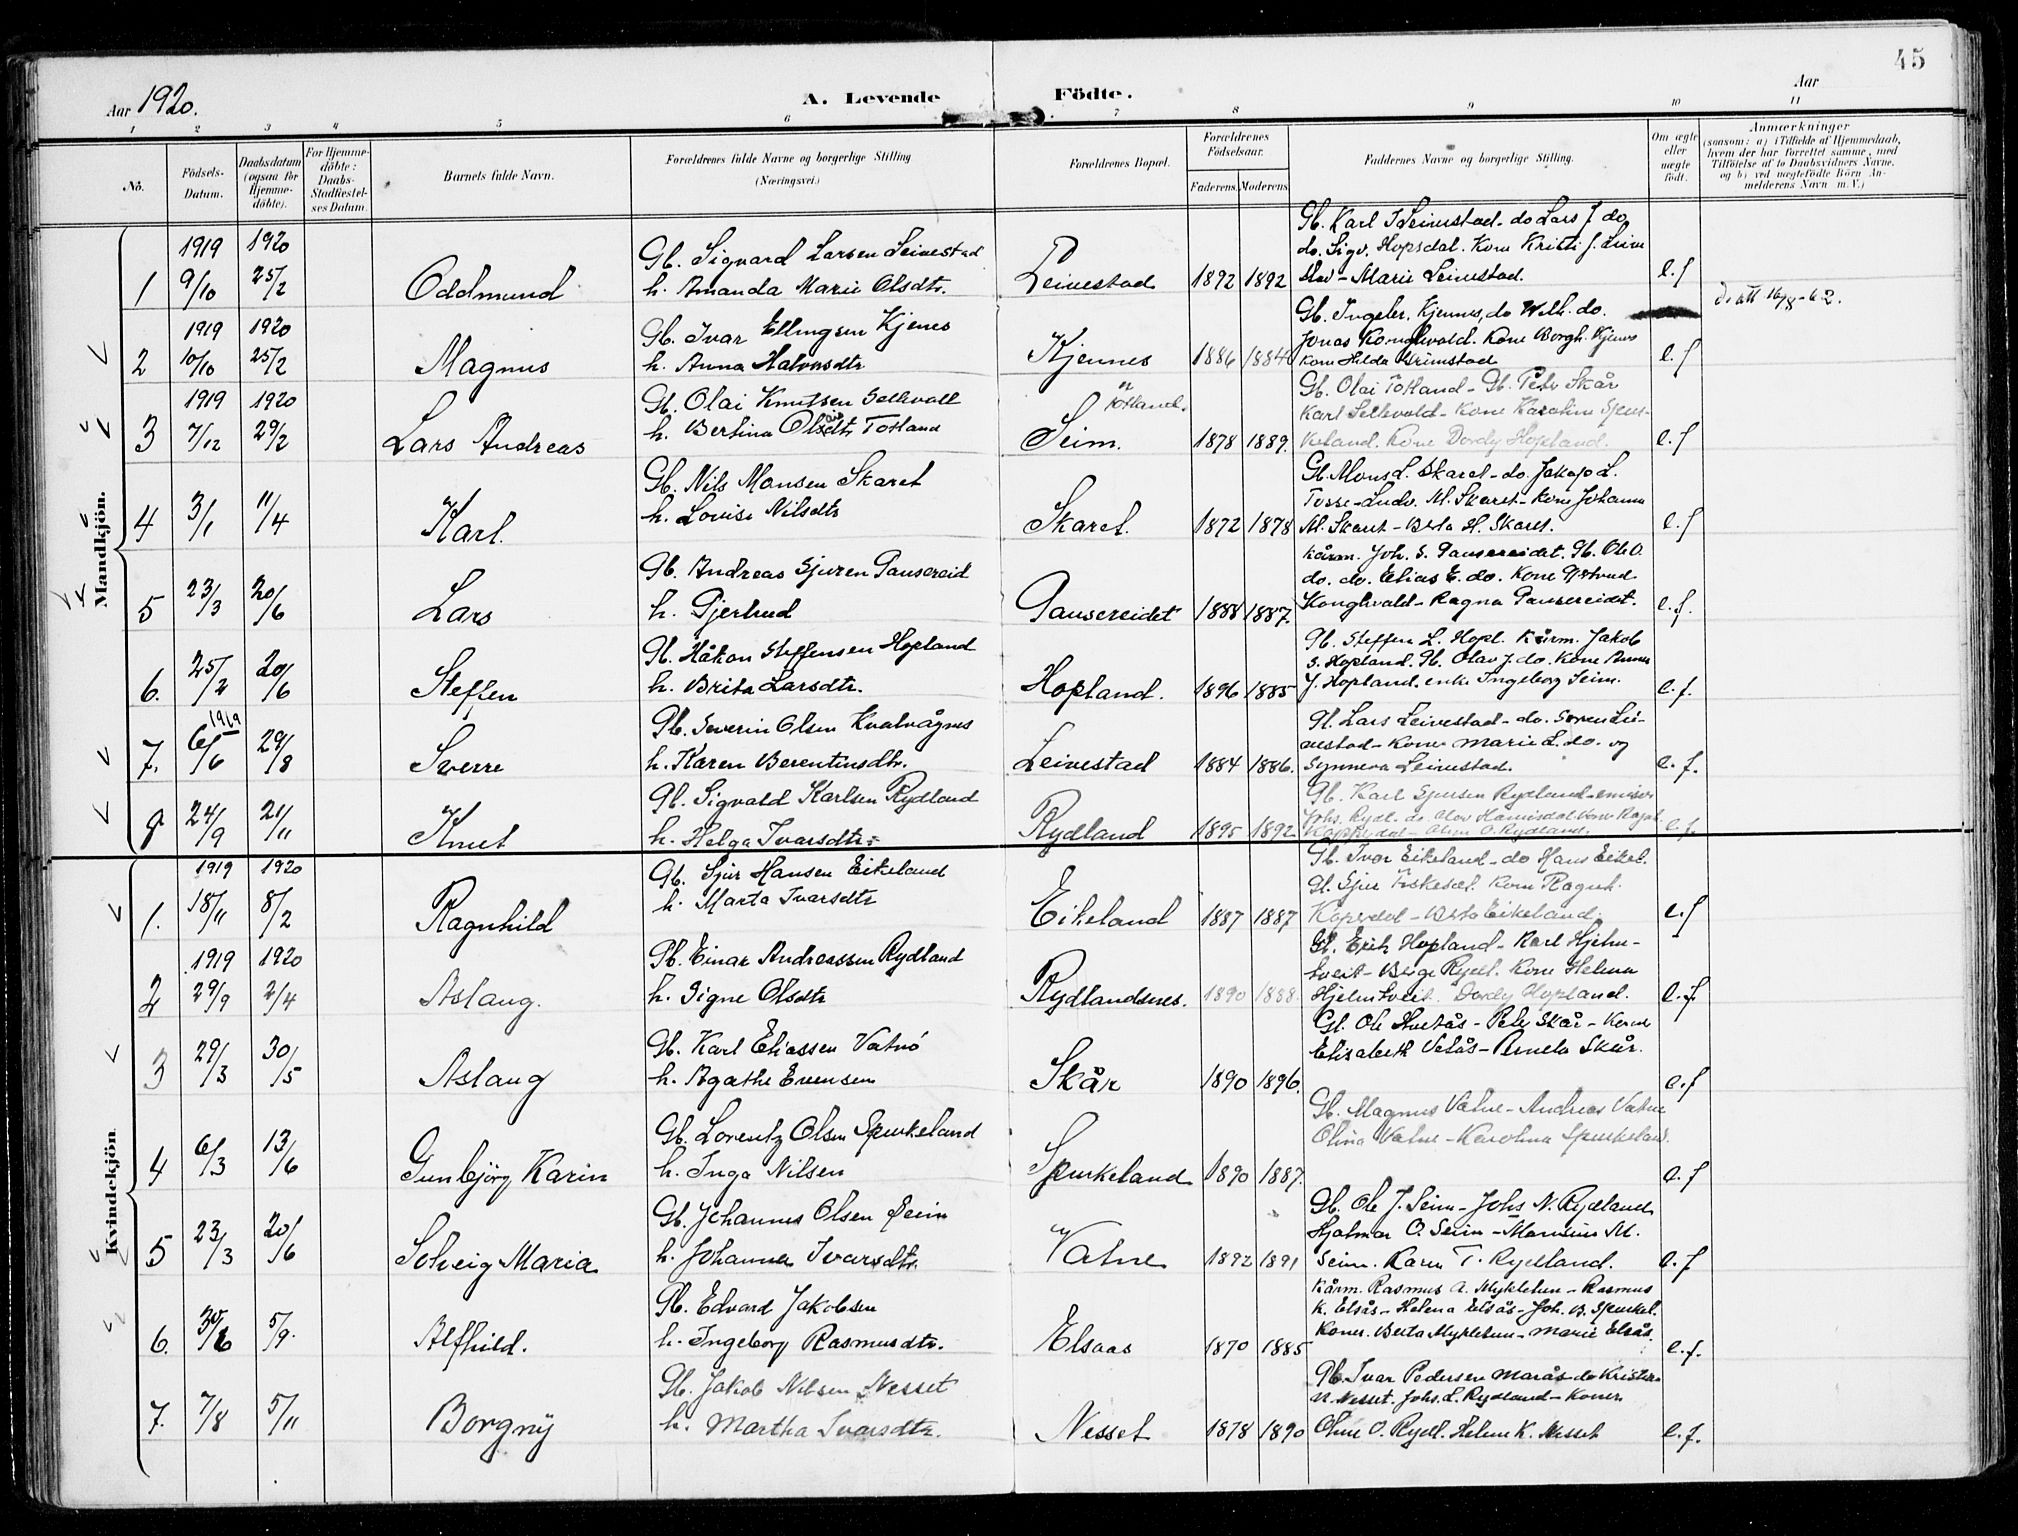 45
Aar 1920.
A. Levende Födte.
Aar
1 2 3 4 5 6 7 8 9 10 11
No.
Födsels-Datum.
Daabsdatum (ogsaa for Hjemme-döbte).
For Hjemme-döbte: Daabs-Stadfæstel-ses Datum.
Barnets fulde Navn.
Forældrenes fulde Navne og borgerlige Stilling (Næringsvei.)
Forældrenes Bopæl.
Forældrenes Födselsaar.
Faderens. Moderens.
Faddernes Navne og borgerlige Stilling.
Om ægte eller uægte födt.
Anmærkninger
(saasom: a) i Tilfælde af Hjemmedaab, hvem der har forrettet samme, med Tilföielse af to Daabsvidners Navne, og b) ved uægtefödte Börn An-melderens Navn m. V.)
Mandkjön.
1 1919 9/10 1920 25/2 Oddmund
Gb. Sigvard Larsen Leivestad
h. Amanda Marie Olsdtr.
Leivestad 1892 1892
Gb. Karl Leivestad - do Lars J do
do. Sigv. Hopsdal. Kone Kristi J. Leive
stad - Marie Leivestad.
e.f
16/8 - 62.
2 1919 10/10 1920 25/2 Magnus
Gb. Ivar Ellingsen Kjenes
h. Anna Halvorsdtr
Kjennes 1886 1884
Gb. Ingebr. Kjennes, do Wilh. do.
Jonas Konglevold. Kone Borgh. Kjennes
Kone Hilda Grimstad
e.f
3 1919 7/12 1920 29/2 Lars Andreas
Gb. Olai Knutsen Sellevoll
h. Bertina Olsdtr Totland
Totland.
Seim. 1878 1889.
Gb. Olai Totland - Gb. Petr Skår
Karl Sellevold - Kone Karoline Spur-
keland. Kone Dordy Hopland.
e.f
4 3/1 11/4 Karl.
Gb. Nils Monsen Skaret
h. Lovise Nilsdtr
Skaret. 1872 1878
Gb. Mons L. Skaret - do. Jakop L.
Tosse - Ludv. M. Skaret - Kone Johanna
M. Skaret - Berta H. Skaret.
e.f
5 23/3 20/6 Lars
Gb. Andreas Sjursen Gausereid
h. Gjertrud
Gausereidet 1888 1887.
Kårm. Joh. S. Gausereidet. Gb. Ole O.
do. do. Elias E. do. Kone Gjertrud
Konglevold - Ragna Gausereidet.
e.f.
6. 25/2 20/6 Steffen
Gb. Håkon Steffensen Hopland
h. Brita Larsdtr.
Hopland. 1896 1885
Gb. Steffen L. Hopl. Kårm. Jakob
S. Hopland. Gb. Olav J. do. Kone Anna
J. Hopland. enke Ingeborg Seim.
e.f.
7. 1919 6/6 29/8 Sverre
Gb. Severin Olsen Kvalvågnes
h. Karen Berentinsdtr.
Leivestad 1884 1886.
Gb. Lars Leivestad - do. Søren Lei-
vestad - Kone Marie L. do. og
Synneva Leivestad.
e.f.
8 24/9 21/11 Knut
Gb. Sigvald Karlsen Rydland
h. Helga Ivarsdtr.
Rydland 1895 1892
Gb. Karl Sjursen Rydland -
Johs. Rydl. do. Olav Kone Ragnh.
Kopperdal - O. Rydland.
e.f.
Kvindekjön
1. 1919 18/11 1920 8/2 Ragnhild
Gb. Sjur Hansen Eikeland
h. Marta Ivarsdtr
Eikeland 1887 1887
Gb. Ivar Eikeland - do Hans Eikel.
Gb. Sjur Fiskesæt. Kone Ragnh.
Kopperdal - Berta Eikeland.
e.f
2 1919 29/9 1920 2/4 Aslaug.
Gb. Einar Andreassen Rydland
h. Signe Olsdtr
Rydlandsnes. 1890 1888.
Gb. Erik Hopland - Karl Hjelm-
tveit - Birge Rydl. Kone Helena
Hjelmtveit. Dordy Hopland.
e.f.
3 29/3 30/5 Aslaug
Gb. Karl Eliassen Vatnö
h. Agathe Evensen
Skår 1890 1896.
Gb. Ole Hvetås - Peter Skår - Kone
Elisabeth Vetås - Pernela Skår.
e.f
4 6/3 13/6 Gunbjörg Karin
Gb. Lorentz Olsen Spurkeland
h. Inga Nilsen
Spurkeland 1890 1887.
Gb. Magnus Vatne - Andreas Vatne
Olina Vatne - Karolina Spurkeland.
e.f
5 23/3 20/6 Solveig Maria
Gb. Johannes Olsen Seim
h. Johanna Ivarsdtr.
Vatne 1892 1891
Gb. Ole J. Seim - Johs N. Rydland
Hjalmar O. Seim - M.
Seim. Karen T. Rydland.
e.f
6. 30/6 5/9. Alfhild.
Gb. Edvard Jakobsen
h. Ingeborg Rasmusdtr.
Elsaas 1870 1885
Kårm. Rasmus A. Mykletun - Rasmus
K. Elsås - Helena Elsås - Joh. B. Spurkel.
Koner. Berta Mykletun - Marie Elsås.
e.f.
7. 7/8 5/11 Borgny
Gb. Jakob Nilsen Nesset
h. Martha Ivarsdtr.
Nesset 1878 1890
Gb. Ivar Pedersen Marås do Kristen
N. Nesset. Johs. L. Rydland - Koner
Oline O. Rydl. Helene K. Nesset
e.f.